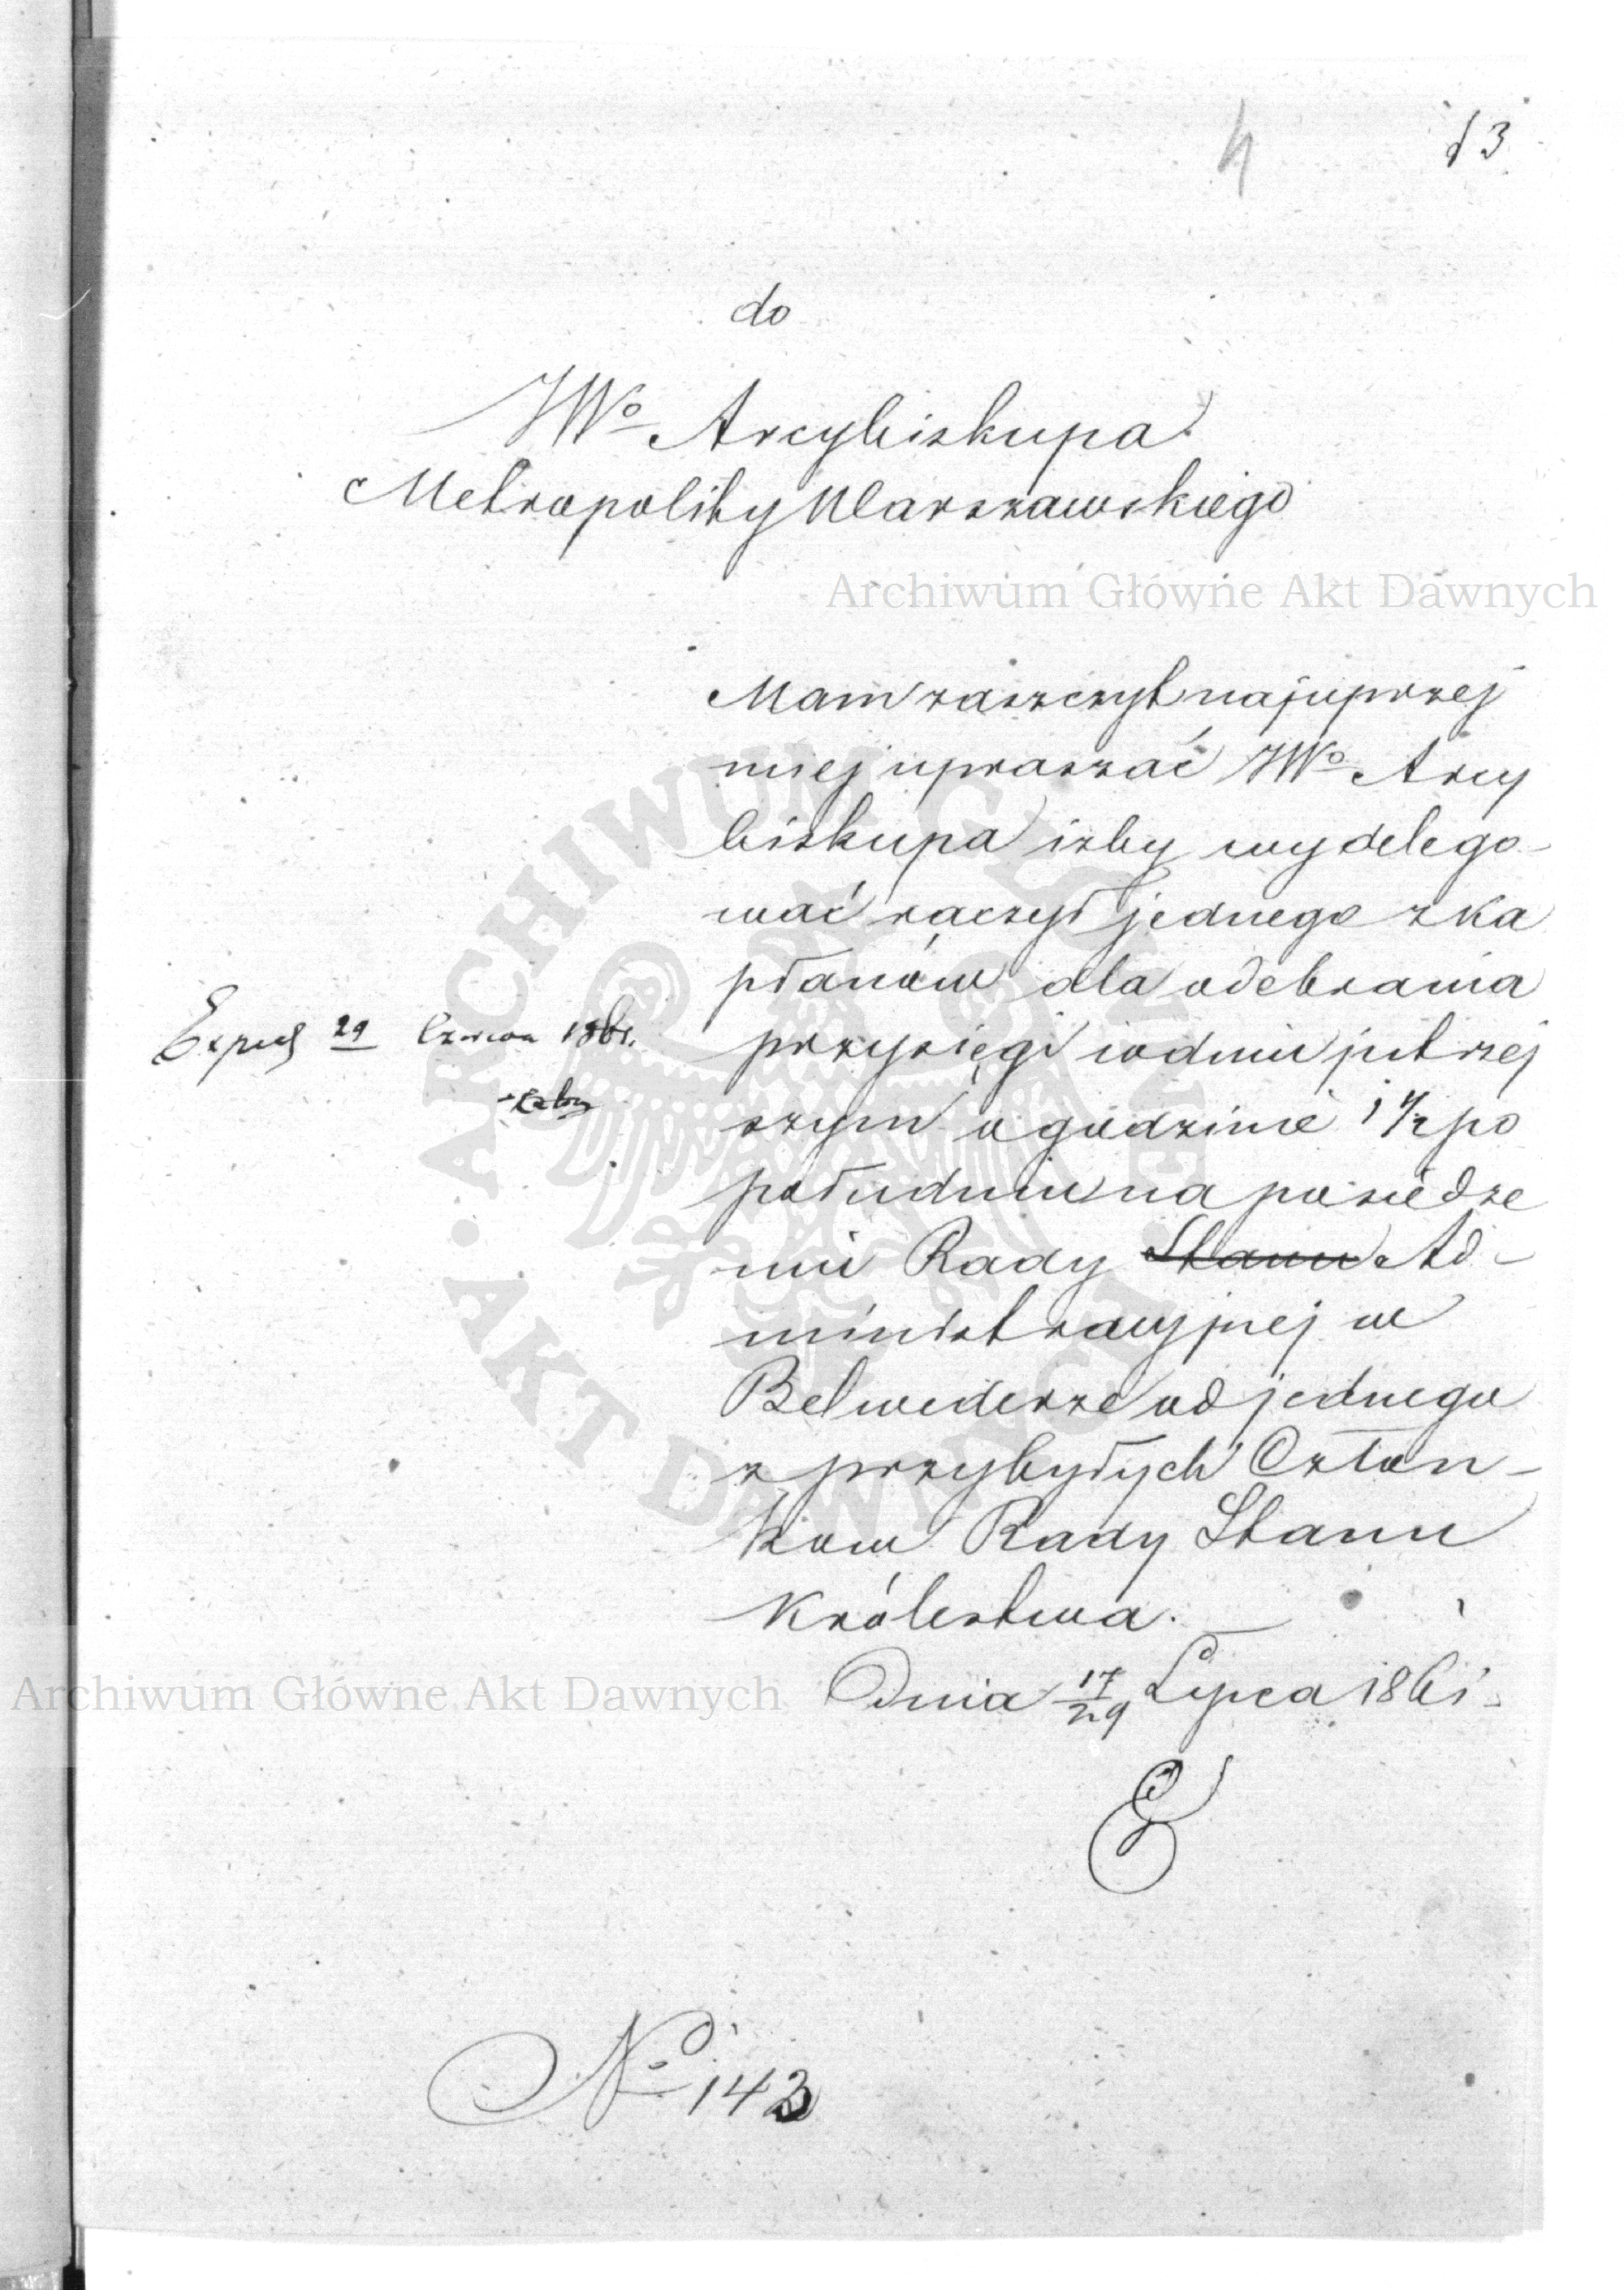 4 13
do
JWo Arcybiskupa
Metropolity Warszawskiego
Archiwum Główne Akt Dawnych
Mam zaszczyt najuprzej
miej upraszać JWo Arcy
biskupa izby wydelego-
wać raczył jednego z ka
płanów dla odebrania
Exped 29 Czerwca 1861.
przysięgi w dniu jutrzej
szym o godzinie 1 1/2 po
południu na posiedze
niu Rady Stanu Ad-
ministracyjnej w
Belwederze od jednego
z przybyłych Człon-
kow Rady Stanu
Królestwa.
Archiwum Główne Akt Dawnych
Dnia 17/29 Lipca 1861.
No 143
ARCHIWUM GŁÓWNE AKT DAWNYCH